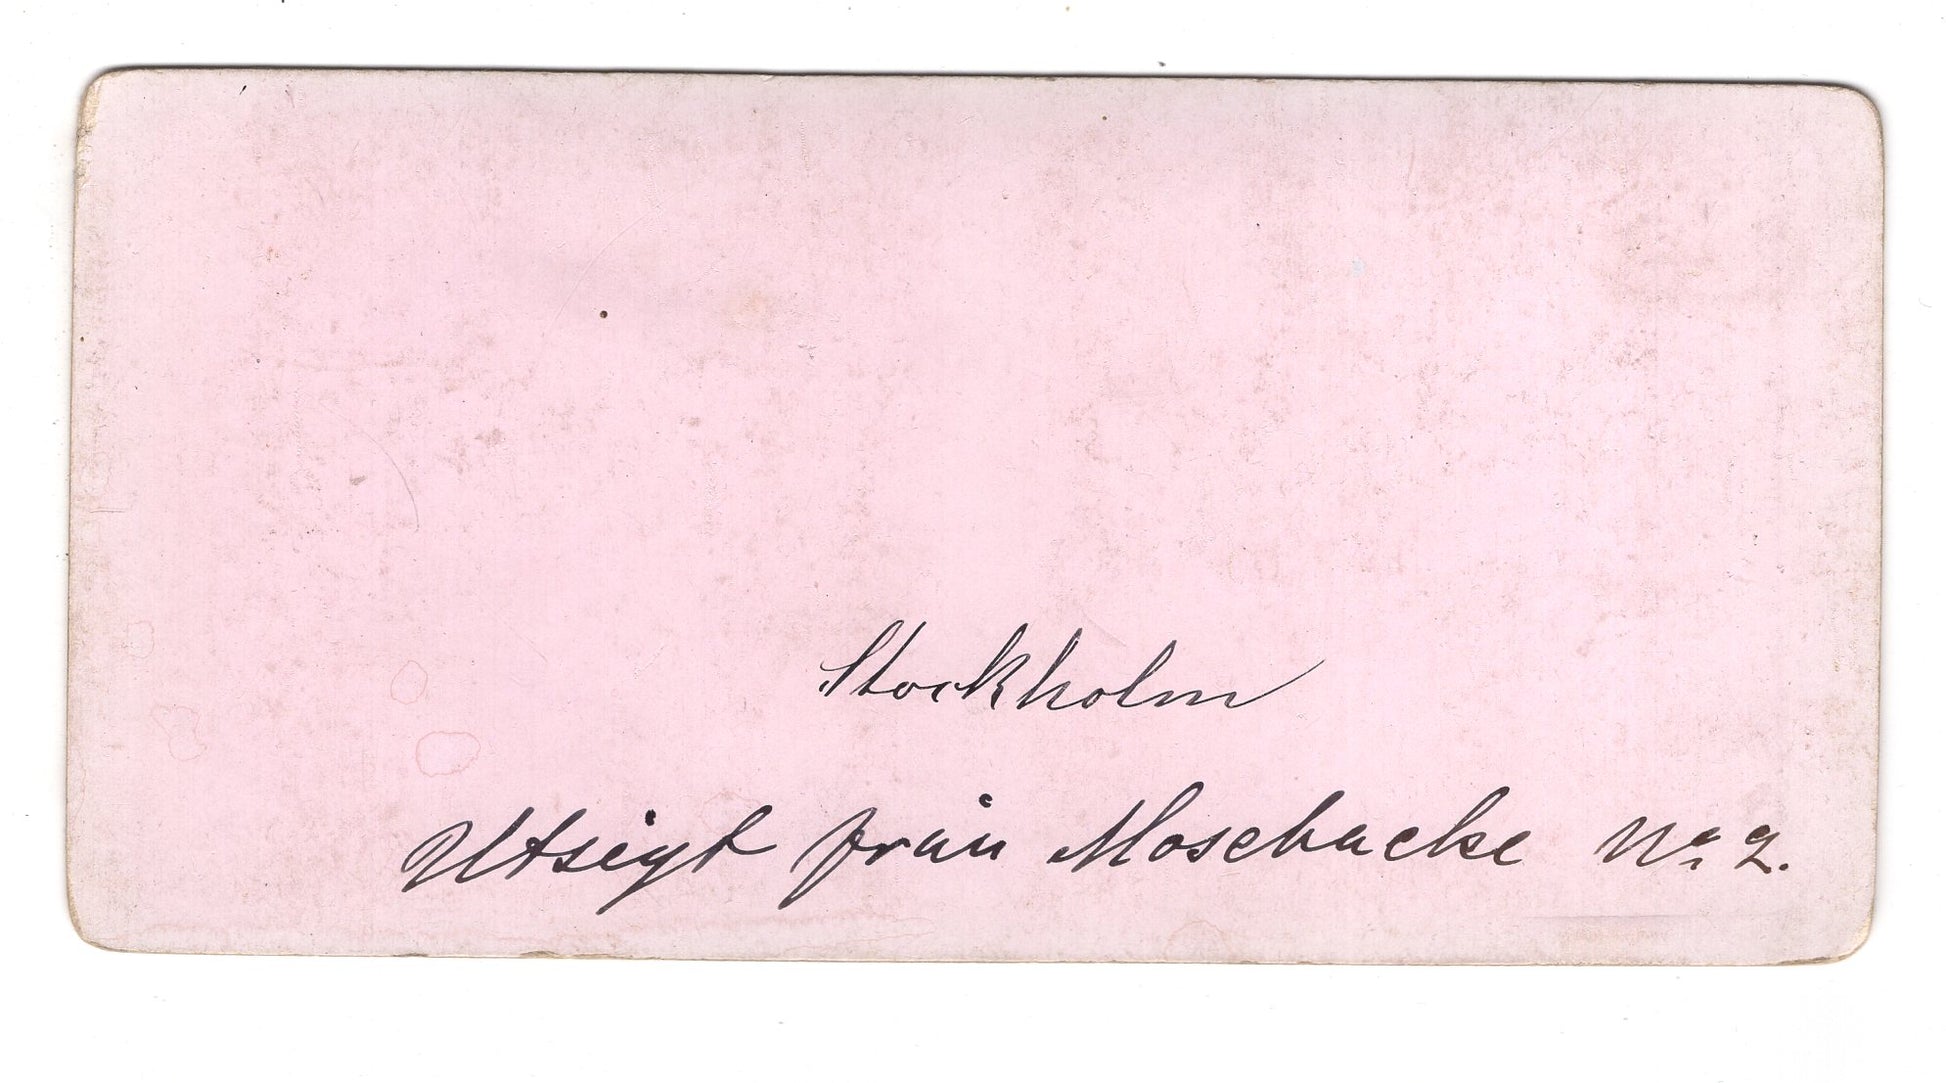 Stockholm
Utsigt från Mosebacke No 2.